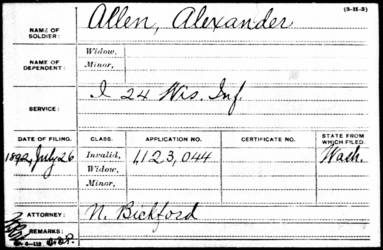 (3-11-3)
NAME OF SOLDIER: Allen, Alexander
NAME OF DEPENDENT: Widow, Minor,
SERVICE: I 24 Wis. Inf.
DATE OF FILING. CLASS. APPLICATION NO. CERTIFICATE NO. STATE FROM WHICH FILED.
1892, July 26 Invalid, 1,123,044 Wash.
Widow,
Minor,
ATTORNEY: N. Bickford
REMARKS: